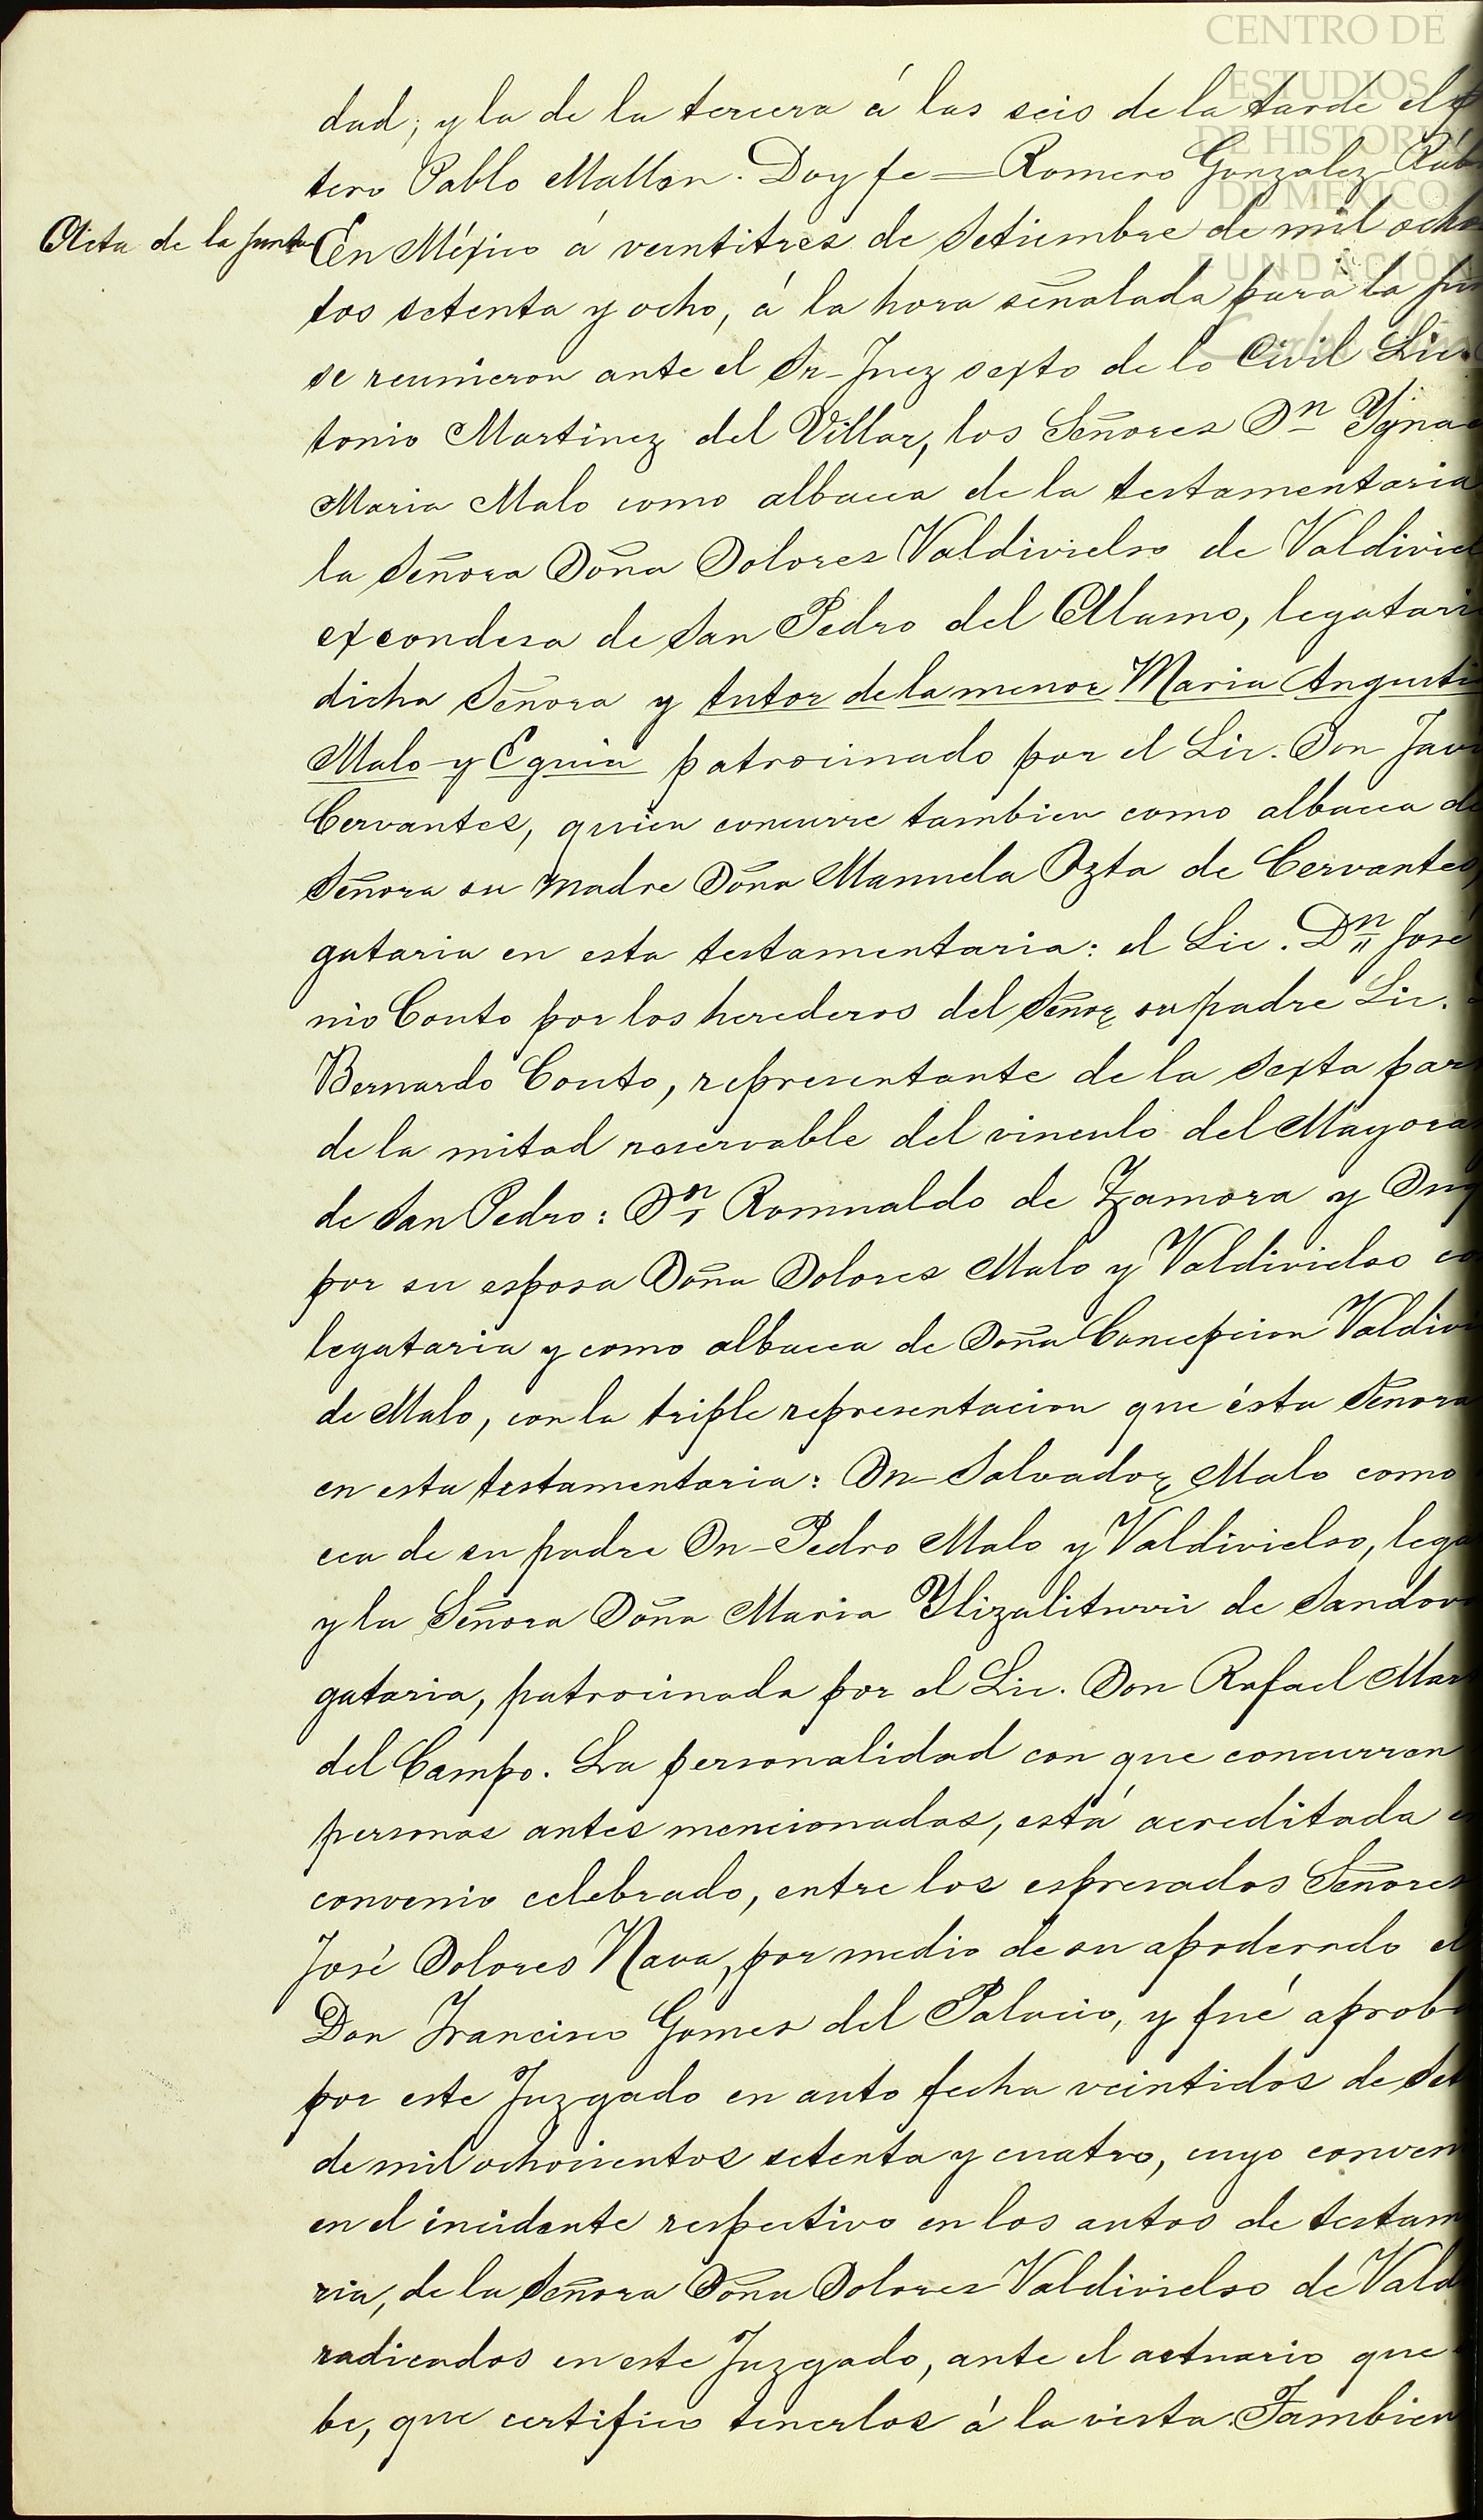 CENTRO DE
ESTUDIOS
DE HISTORIA
DE MÉXICO
FUNDACIÓN
dad; y la de la tercera á las seis de la tarde el
tero Pablo Mallen. Doy fe = Romero Gonzalez Rub
Acta de la junta
En Méjico á veintitres de Setiembre de mil ocho
tos setenta y ocho, á la hora señalada para la jun
se reunieron ante el Sr- Juez sexto de lo Civil Lic.
tonio Martinez del Villar, los Señores Dn Ygnac
Maria Malo como albacea de la testamentaria
la Señora Doña Dolores Valdivielso de Valdiviel
excondesa de San Pedro del Alamo, legatari
dicha Señora y tutor de la menor Maria Angusti
Malo y Eguia patrocinado por el Lic. Don Javi
Cervantes, quien concurre tambien como albacea de
Señora su madre Doña Manuela Ozta de Cervantes,
gataria en esta testamentaria: el Lic. Dn José
nio Couto por los herederos del Señor su padre Lic.
Bernardo Couto, representante de la sexta par
de la mitad reservable del vinculo del Mayora
de San Pedro: Dn Romualdo de Zamora y Duq
por su esposa Doña Dolores Malo y Valdivielso co
legataria y como albacea de Doña Concepcion Valdivi
de Malo, con la triple representacion que ésta Señora
en esta testamentaria: Dn- Salvador Malo como
cea de su padre Dn- Pedro Malo y Valdivielso, lega
y la Señora Doña Maria Ylizaliturri de Sandov
gataria, patrocinada por el Lic. Don Rafael Mar
del Campo. La personalidad con que concurren
personas antes mencionadas, está acreditada e
convenio celebrado, entre los espresados Señores
José Dolores Nava, por medio de su apoderado el
Don Francisco Gomes del Palacio, y fué aproba
por este Juzgado en auto fecha veintidos de Set
de mil ochocientos setenta y cuatro, cuyo conven
en el incidente respectivo en los autos de testam
ria, de la Señora Doña Dolores Valdivielso de Vald
radicados en este Juzgado, ante el actuario que
be, que certifico tenerlos á la vista. Tambien